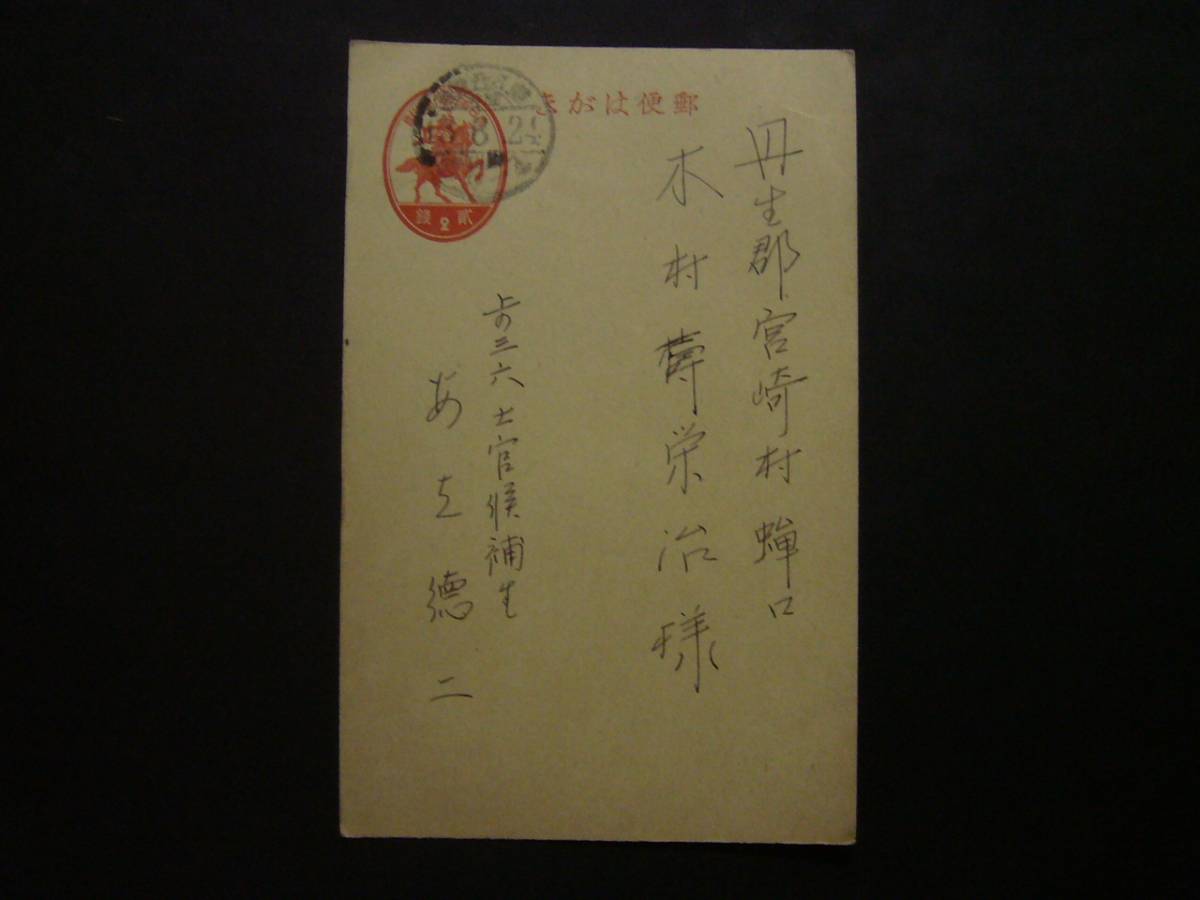 郵便はがき
貳錢
8 24
丹生郡宮崎村蝉口
木村壽栄治様
三六士官候補生
あ 德二